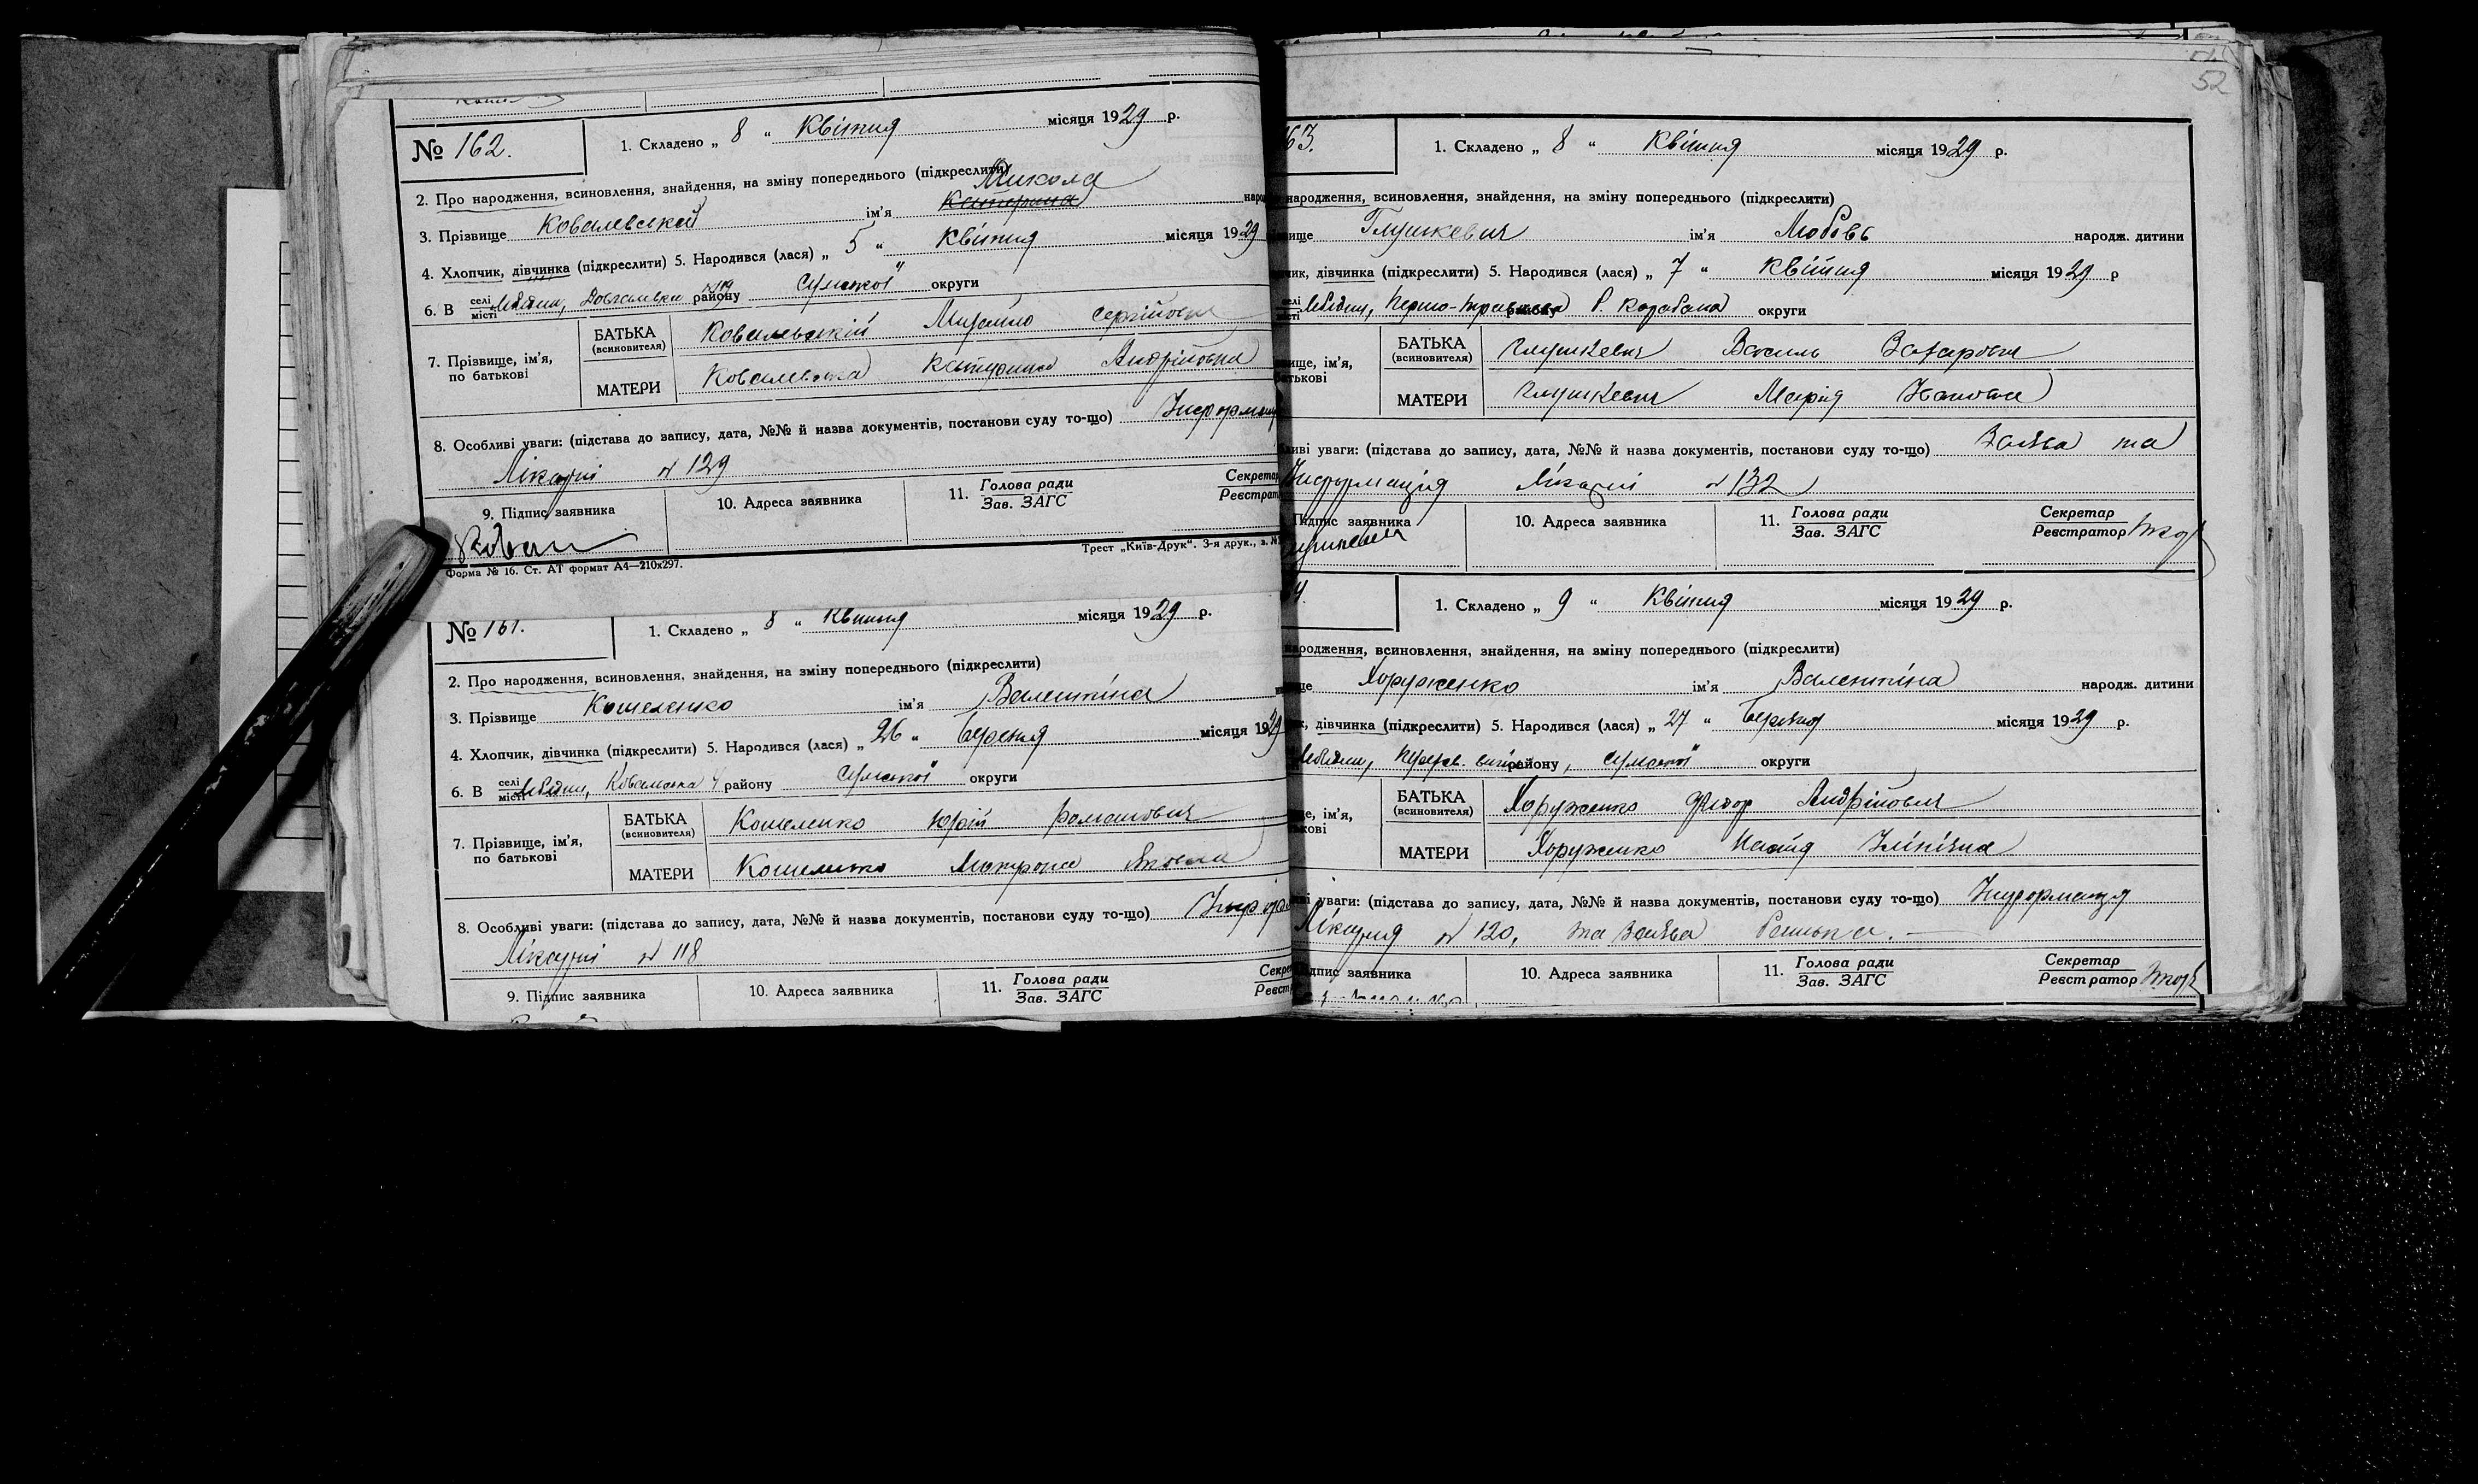 52
№ 162.
1. Складено „ 8 “ Квітня місяця 1929 р.
2. Про народження, всиновлення, знайдення, на зміну попереднього (підкреслити)
Микола
3. Прізвище Ковалевський ім'я Катерина
4. Хлопчик, дівчинка (підкреслити) 5. Народився (лася) „ 5 “ Квітня місяця 1929
6. В селі місті Лебедин, району Сумської округи
7. Прізвище, ім'я, по батькові
БАТЬКА (всиновителя) Ковалевський Михайло Сергійович
МАТЕРИ Ковалевська Катерина Андріївна
8. Особливі уваги: (підстава до запису, дата, №№ й назва документів, постанови суду то-що)
Лікарні № 129
9. Підпис заявника 10. Адреса заявника 11. Голова ради Зав. ЗАГС
Форма № 16. Ст. АТ формат А4—210х297. Трест „Київ-Друк“. 3-я друк., з. №
№ 161.
1. Складено „ 8 “ Квітня місяця 1929 р.
2. Про народження, всиновлення, знайдення, на зміну попереднього (підкреслити)
3. Прізвище Кошеленко ім'я Валентіна
4. Хлопчик, дівчинка (підкреслити) 5. Народився (лася) „ 26 “ Березня місяця 1929
6. В селі місті Лебедин, району Сумської округи
7. Прізвище, ім'я, по батькові
БАТЬКА (всиновителя) Кошеленко Юрій Романович
МАТЕРИ Кошеленко Мотрона Яковна
8. Особливі уваги: (підстава до запису, дата, №№ й назва документів, постанови суду то-що)
Лікарні № 118
9. Підпис заявника 10. Адреса заявника 11. Голова ради Зав. ЗАГС
63.
1. Складено „ 8 “ Квітня місяця 1929 р.
народження, всиновлення, знайдення, на зміну попереднього (підкреслити)
Глушкевич ім'я Любовь народж. дитини
дівчинка (підкреслити) 5. Народився (лася) „ 7 “ Квітня місяця 1929 р
Лебедин, округи
БАТЬКА (всиновителя) Глушкевич Василь Захарович
МАТЕРИ Глушкевич Марія
уваги: (підстава до запису, дата, №№ й назва документів, постанови суду то-що) Заява та
Информація Лікарні № 132
Підпис заявника 10. Адреса заявника 11. Голова ради Зав. ЗАГС Секретар Реєстратор
4.
1. Складено „ 9 “ Квітня місяця 1929 р.
народження, всиновлення, знайдення, на зміну попереднього (підкреслити)
Хоруженко ім'я Валентіна народж. дитини
дівчинка (підкреслити) 5. Народився (лася) „ 27 “ Березня місяця 1929 р.
Лебедин, району, Сумської округи
БАТЬКА (всиновителя) Хоруженко Федор Андрійович
МАТЕРИ Хоруженко
уваги: (підстава до запису, дата, №№ й назва документів, постанови суду то-що) Информація
Лікарня № 120, та заява батька.
підпис заявника 10. Адреса заявника 11. Голова ради Зав. ЗАГС Секретар Реєстратор